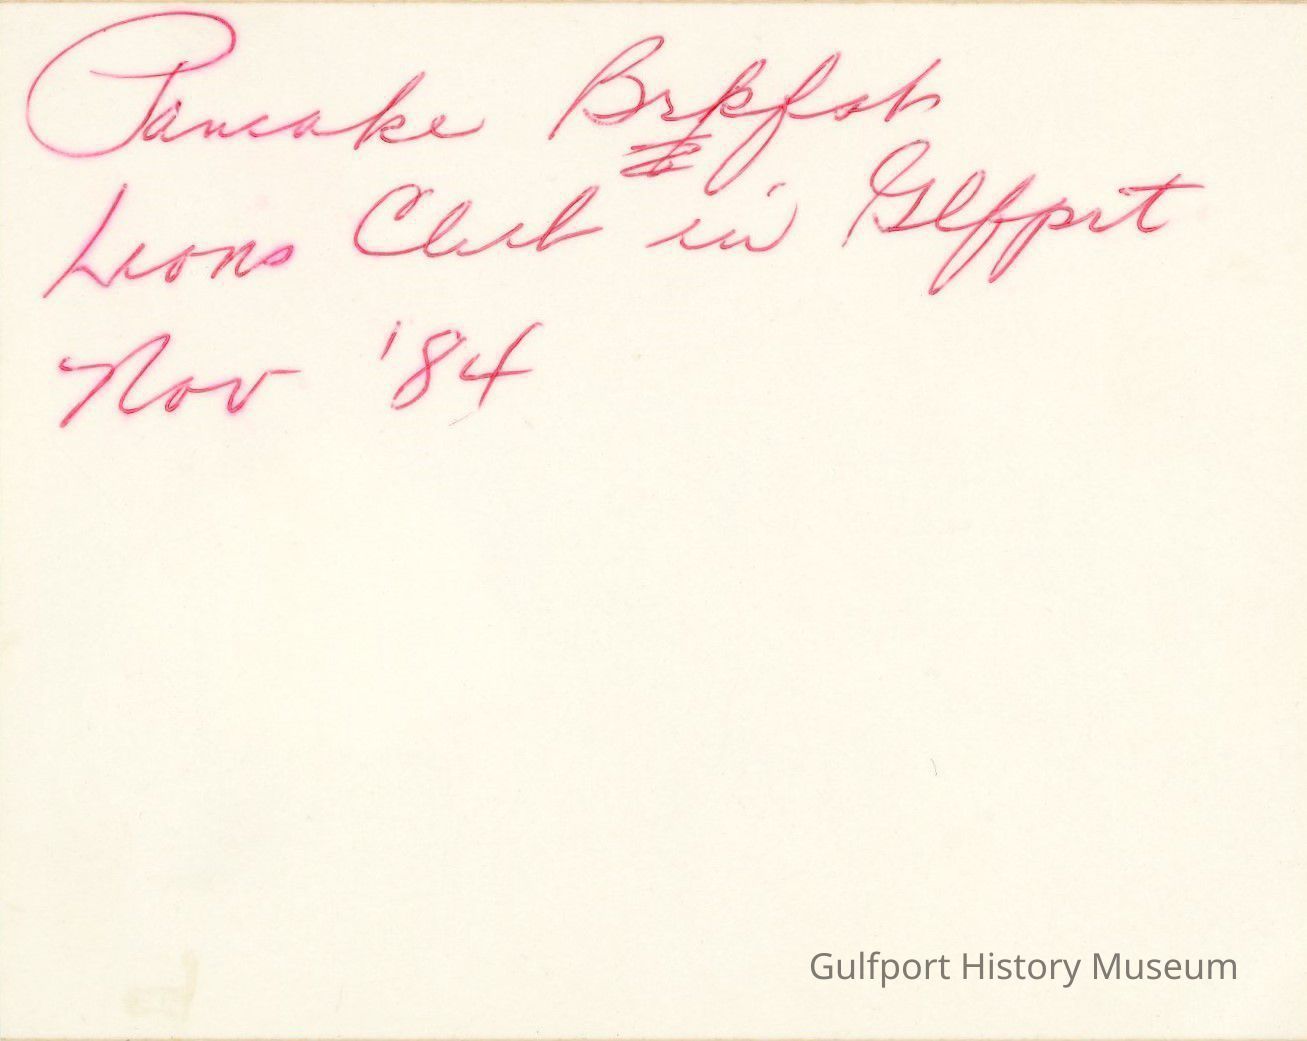 Pancake Brkfst
Lions Club in Glfprt
Nov '84
Gulfport History Museum